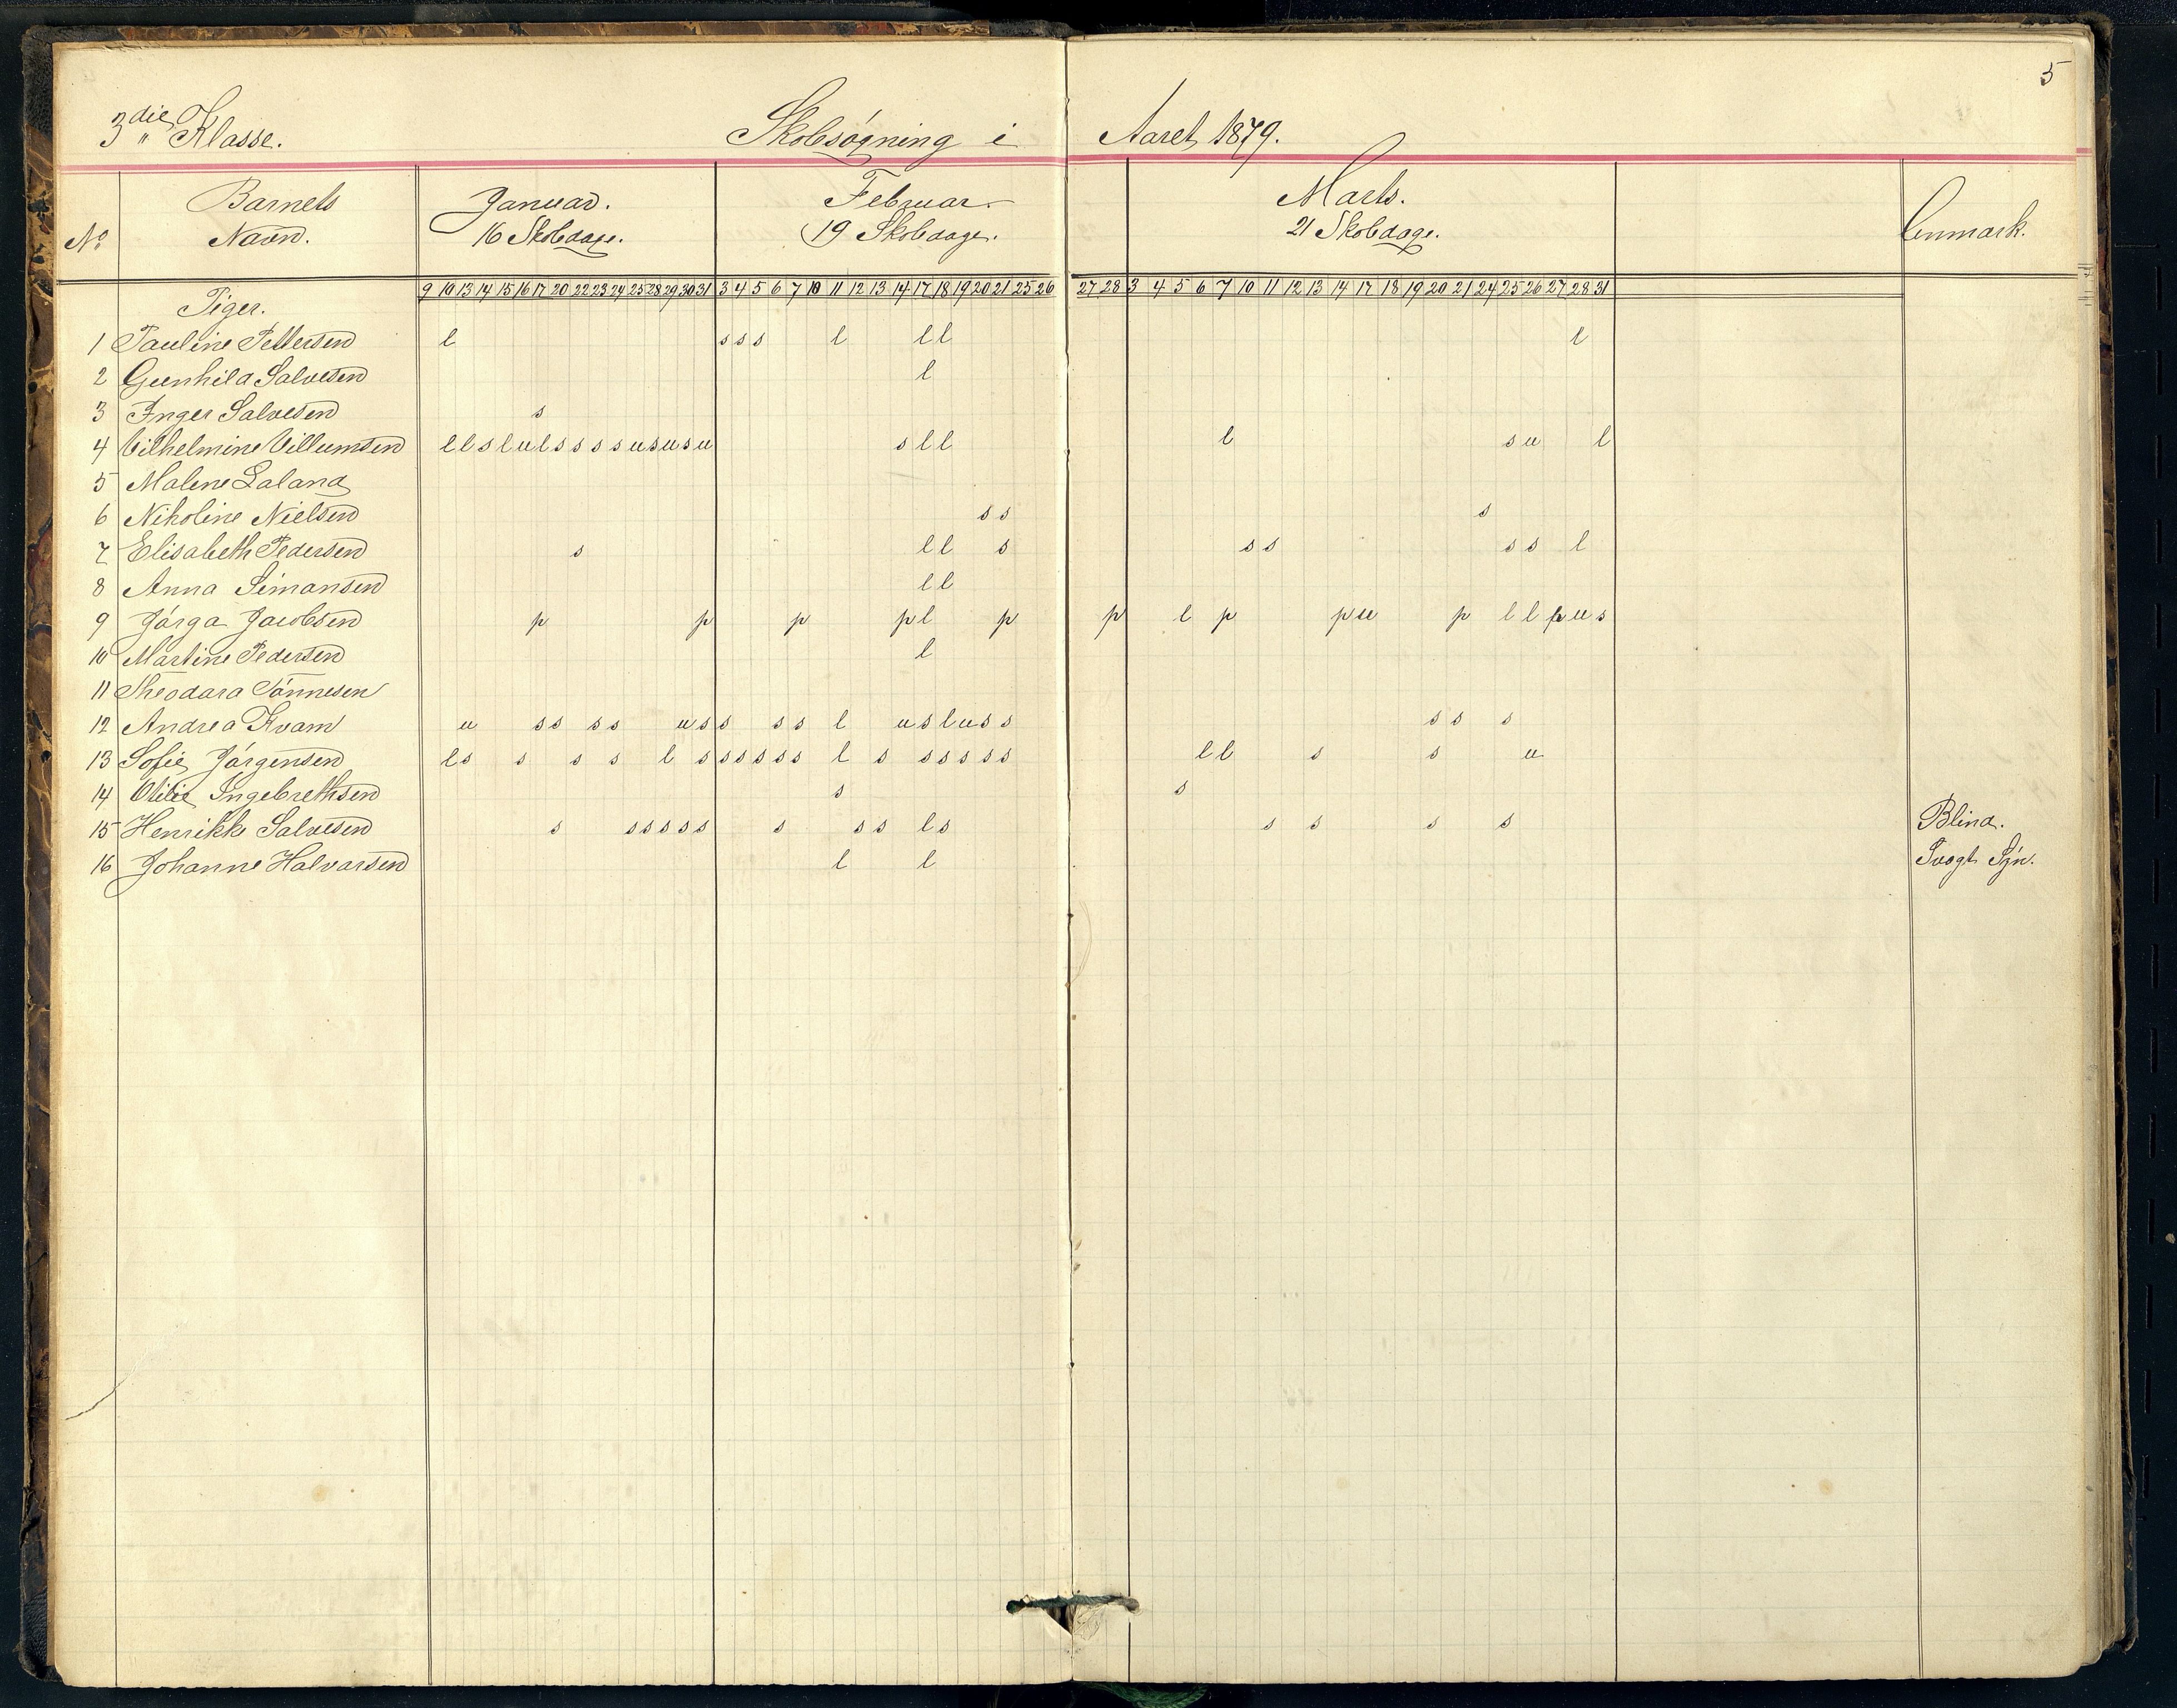 5
3die Klasse. Skolesøgning i Aaret 1879.
No Barnets Navn. Januar. 16 Skoledage. Februar. 19 Skoledage. Marts. 21 Skoledage. Anmærk.
9 10 13 14 15 16 17 20 22 23 24 25 28 29 30 31 3 4 5 6 7 10 11 12 13 14 17 18 19 20 21 25 26 27 28 3 4 5 6 7 10 11 12 13 14 17 18 19 20 21 24 25 26 27 28 31
Piger.
1 Pauline Pettersen l s s s l l l l
2 Gunhild Salvesen l
3 Inger Salvesen s
4 Vilhelmine Villumsen l l s l u l s s s s u s u s u s l l l s u l
5 Malene Laland
6 Nikoline Nielsen s s s
7 Elisabeth Pedersen s l l s s s s s l
8 Anna Simonsen l l
9 Jörga Jacobsen p p p p l p p l p p u p l l p u s
10 Martine Pedersen l
11 Theodora Tönnesen
12 Andrea Kvam u s s s s u s s s s l u s l u s s s s s
13 Sofie Jörgensen l s s s s l s s s s s s l s s s s s s l l s s u
14 Olilie Ingebrethsen s s
15 Henrikke Salvesen s s s s s s s s s l s s s s s Blind.
16 Johanne Halvorsen l l Svagt Syn.